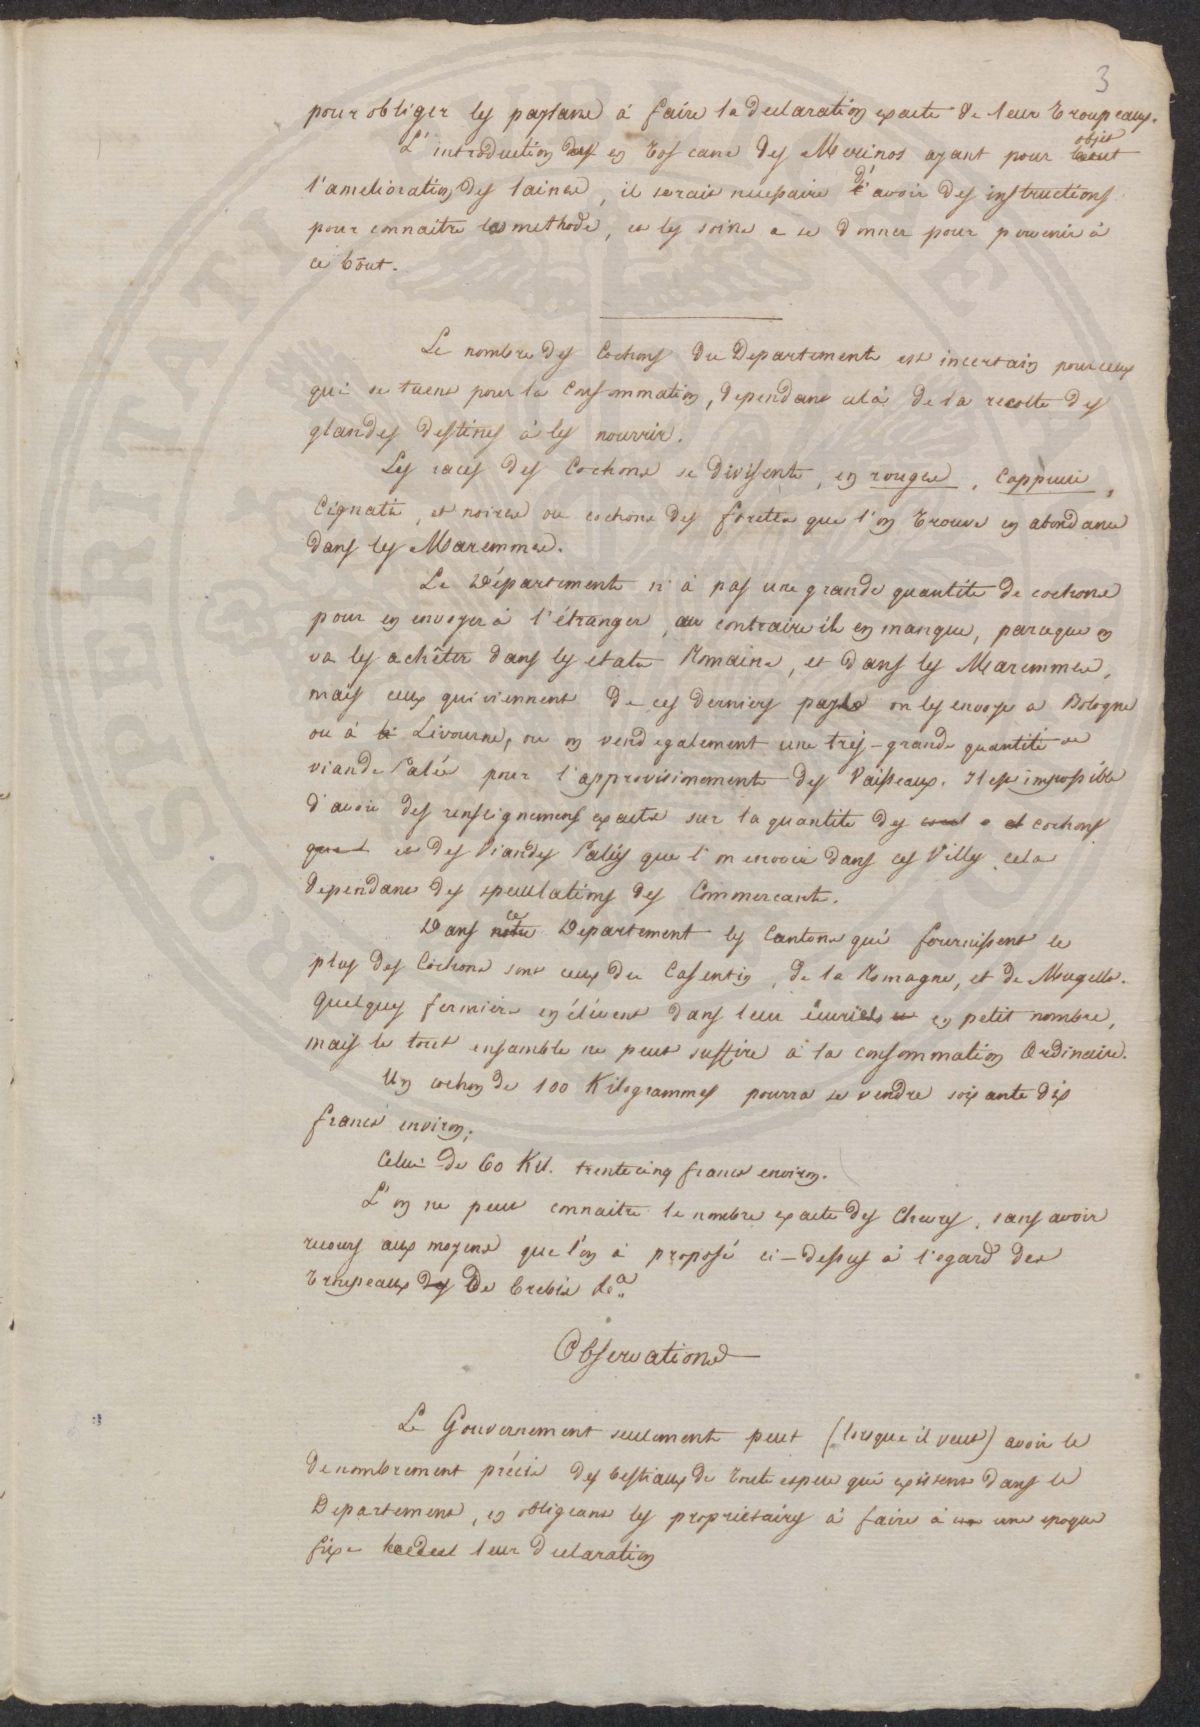 3
pour obliger les paysans à faire la declaration exacte de leur troupeaux.
L'introduction en Toscane des Merinos ayant pour objet
l'amelioration des laines, il serait necessaire d'avoir des instructions
pour connaitre la methode, et les soins a se donner pour parvenir à
ce bout.
Le nombre des Cochons du Departement est incertain pour ceux
qui se tuent pour la Consommation, dependant celà de la recolte des
glandes destinés à les nourrir.
Les races des Cochons se divisent, en rouges, Cappucci,
Cignati, et noires ou cochons des forets que l'on trouve en abondance
dans les Maremmes.
Le Département n'à pas une grande quantité de cochons
pour en envoyer à l'étranger, au contraire il en manque, parceque on
va les achêter dans les etats Romains, et dans les Maremmes,
mais ceux qui viennent de ces derniers pays on les envoye a Bologne
ou à Livourne, ou on vend egalement une très-grande quantité de
viande salée pour l'approvisionement des Vaisseaux. Il est impossible
d'avoir des renseignemens exacts sur la quantité des cochons
et des Viandes Salés que l'on envoie dans ces Villes cela
dependant des speculations des Commercants.
Dans ce Departement les Cantons qui fournissent le
plus des Cochons sont ceux du Casentin, de la Romagne, et de Mugello.
Quelques fermiers en élévent dans leur écuries en petit nombre,
mais le tout ensamble ne peut suffire à la consommation Ordinaire.
Un cochon de 100 Kilogrammes pourra se vendre soixante dix
francs environ;
Celui de 60 Kil. trente cinq francs environ.
L'on ne peut connaitre le nombre exacte des Chevres, sans avoir
recours aux moyens que l'on à proposé ci-dessus à l'egard des
troupeaux de brebis &c.a
Observations
Le Gouvernement seulement peut (lorsque il veut) avoir le
denombrement précis des bestiaux de toute espece qui existent dans le
Departement, en obligeant les proprietaires à faire à une epoque
fixe leur declaration